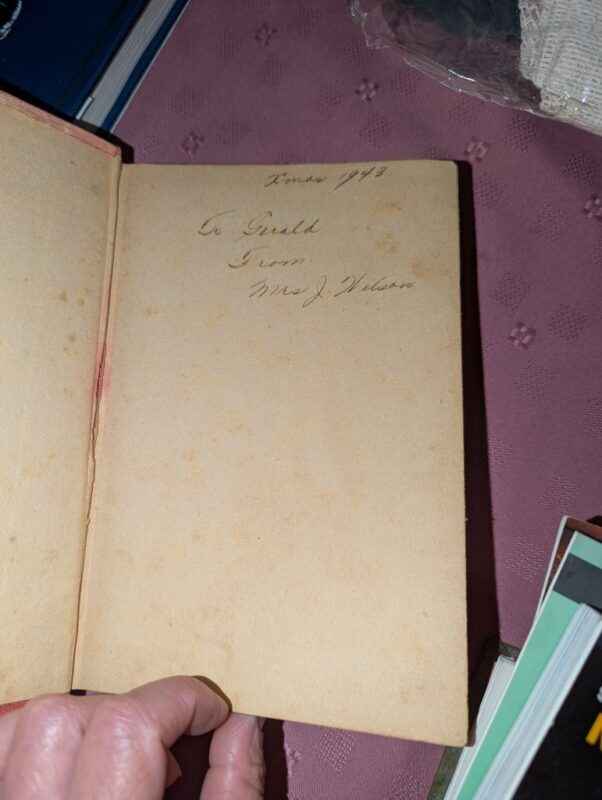 Xmas 1943
To Gerald
From
Mrs J. Wilson